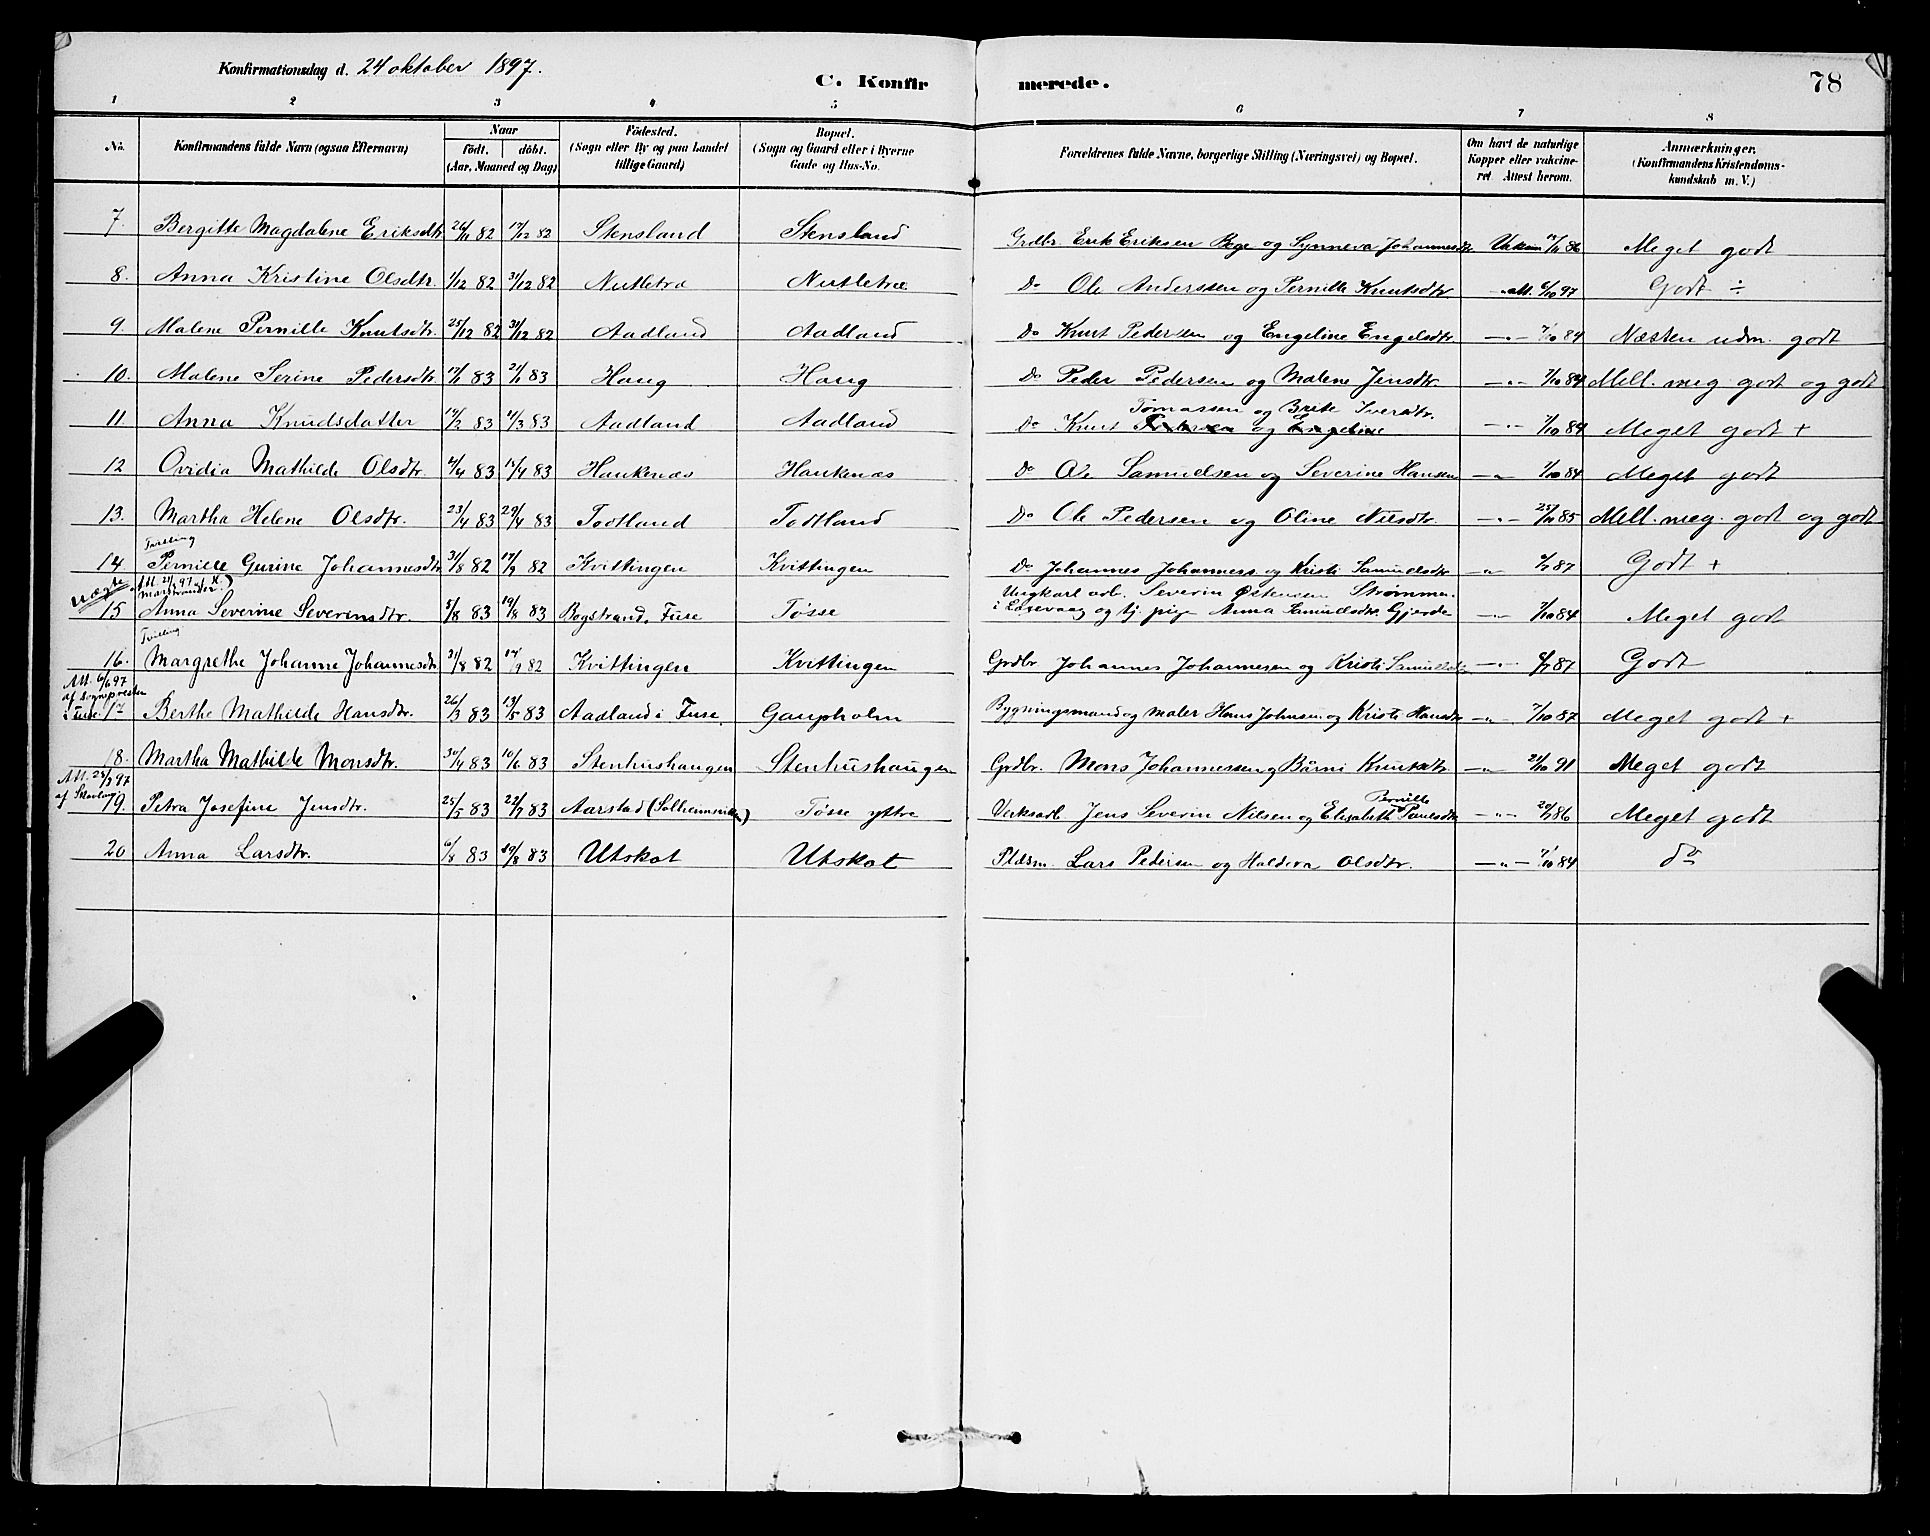 Konfirmationsdag d. 24 oktober 1897.
C. Konfirmerede.
78
1 2 3 4 5 6 7 8
No.
Konfirmandens fulde Navn (ogsaa Efternavn)
Naar
födt. döbt.
(Aar, Maaned og Dag)
Födested.
(Sogn eller By og paa Landet
tillige Gaard)
Bopæl.
(Sogn og Gaard eller i Byerne
Gade og Hus-No.
Forældrenes fulde Navne, borgerlige Stilling (Næringsvei) og Bopæl.
Om havt de naturlige
Kopper eller vakcine-
ret. Attest herom.
Anmærkninger.
(Konfirmandens Kristendoms-
kundskab m. V.)
7. Bergitte Magdalene Eriksdtr. 26/11 82 17/12 82 Stensland Stensland Grdbr. Erik Eriksen Bege og Synneva Johannesdtr. Vakcin 86 Meget godt
8. Anna Kristine Olsdtr. 1/12 82 31/12 82 Nutletræ Nutletræ Do Ole Anderssen og Pernille Knutsdtr. att. 97 Godt ÷
9. Malene Pernille Knutsdtr. 25/12 82 31/12 82 Aadland Aadland Do Knut Pedersen og Engeline Engelsdtr. —"— 7/10 84 Næsten udm. godt
10. Malene Serine Pedersdtr. 17/1 83 21/1 83 Haug Haug Do Peder Pedersen og Malene Jensdtr. —"— 7/10 84 Mell. meg godt og godt
Tomassen og Brite Iversdtr.
11. Anna Knudsdatter 14/2 83 4/3 83 Aadland Aadland Do Knut Pedersen og Engeline —"— 7/10 84 Meget godt +
12 Ovidia Mathilde Olsdtr. 4/4 83 15/4 83 Haukenæs Haukenæs Do Ole Samuelsen og Severine Hansen —"— 7/10 84 Meget godt
13. Martha Helene Olsdtr. 23/4 83 29/4 83 Todtland Todtland Do Ole Pedersen og Oline Nilsdtr. —"— 25/10 85 Mell. meg. godt og godt
Tvilling
14 Pernille Gurine Johannesdtr. 31/8 82 17/9 82 Kvittingen Kvittingen Do Johannes Johanness. og Kristi Samuelsdtr. —"— 87 Godt +
Att. 21/9 97 af K.
Marstrander.)
Ungkarl arb. Severin Østensen Strømmen
15 Anna Severine Severinsdtr. 5/8 83 19/8 83 Bogstrand, Fuse Tøsse i Laxevaag og tj. pige Anna Samuelsdtr. Gjerde —"— 7/10 84 Meget godt
Tvilling
16. Margrethe Johanne Johannesdtr. 31/8 82 17/9 82 Kvittingen Kvittingen Grdbr. Johannes Johannesen og Kristi Samuelsdtr. —"— 87 Godt
Att. 6/6 97
af Sognepresten
i Fuse.
17 Berthe Mathilde Hansdtr. 26/3 83 13/5 83 Aadland i Fuse Gaupholm Bygningsmand og maler Hans Johnsen og Kristi Hansdtr —"— 7/10 87 Meget godt +
18. Martha Mathilde Monsdtr. 30/4 83 10/6 83 Stenhushaugen Stenhushaugen Grdbr. Mons Johannessen og Börni Knutsdtr. —"— 21/10 91 Meget godt
Pernille
19. Petra Josefine Jensdtr. 25/5 83 22/7 83 Aarstad (Solheimsviken) Tøsse ytre Verksarb Jens Severin Nilsen og Elisabeth Paulsdtr —"— 86 Meget godt
20 Anna Larsdtr. 6/8 83 19/8 83 Utskot Utskot Pldsm. Lars Pedersen og Haldora Olsdtr. —"— 7/10 84 do